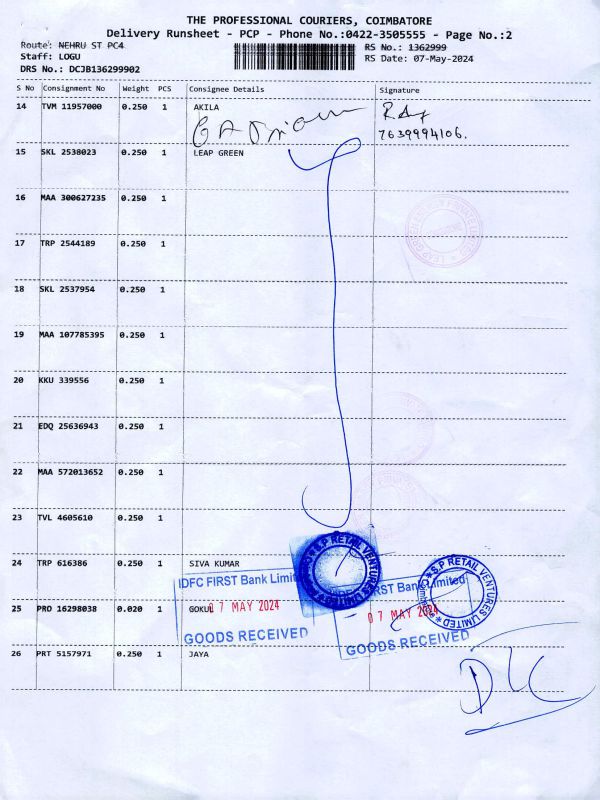 THE PROFESSIONAL COURIERS, COIMBATORE
Delivery Runsheet - PCP - Phone No.:0422-3505555 - Page No.:2
Route: NEHRU ST PC4
RS No.: 1362999
Staff: LOGU
RS Date: 07-May-2024
DRS No.: DCJB136299902
S No Consignment No Weight PCS Consignee Details Signature
14 TVM 11957000 0.250 1 AKILA
7639994106.
15 SKL 2538023 0.250 1 LEAP GREEN
16 MAA 300627235 0.250 1
17 TRP 2544189 0.250 1
18 SKL 2537954 0.250 1
19 MAA 107785395 0.250 1
20 KKU 339556 0.250 1
21 EDQ 25636943 0.250 1
22 MAA 572013652 0.250 1
23 TVL 4605610 0.250 1
24 TRP 616386 0.250 1 SIVA KUMAR
S.P RETAIL VENTURES LIMITED
S.P RETAIL VENTURES LIMITED
IDFC FIRST Bank Limited
FIRST Bank Limited
25 PRO 16298038 0.020 1 GOKUL
07 MAY 2024
07 MAY 2024
GOODS RECEIVED
GOODS RECEIVED
26 PRT 5157971 0.250 1 JAYA